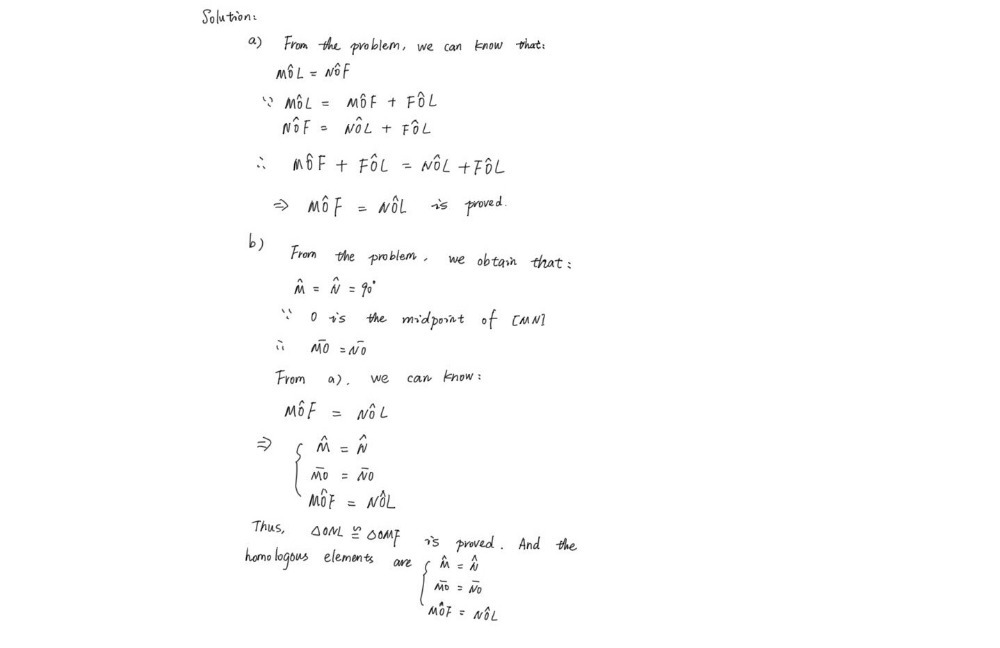 Solution:
a) From the problem, we can know that:
MÔL = NÔF
∵ MÔL = MÔF + FÔL
NÔF = NÔL + FÔL
∴ MÔF + FÔL = NÔL + FÔL
⇒ MÔF = NÔL is proved.
b) From the problem, we obtain that:
M̂ = N̂ = 90°
∵ O is the midpoint of [MN]
∴ M̄O = N̄O
From a), we can know:
MÔF = NÔL
⇒ { M̂ = N̂
M̄O = N̄O
MÔF = NÔL
Thus, △ONL ≌ △OMF is proved. And the
homologous elements are { M̂ = N̂
M̄O = N̄O
MÔF = NÔL